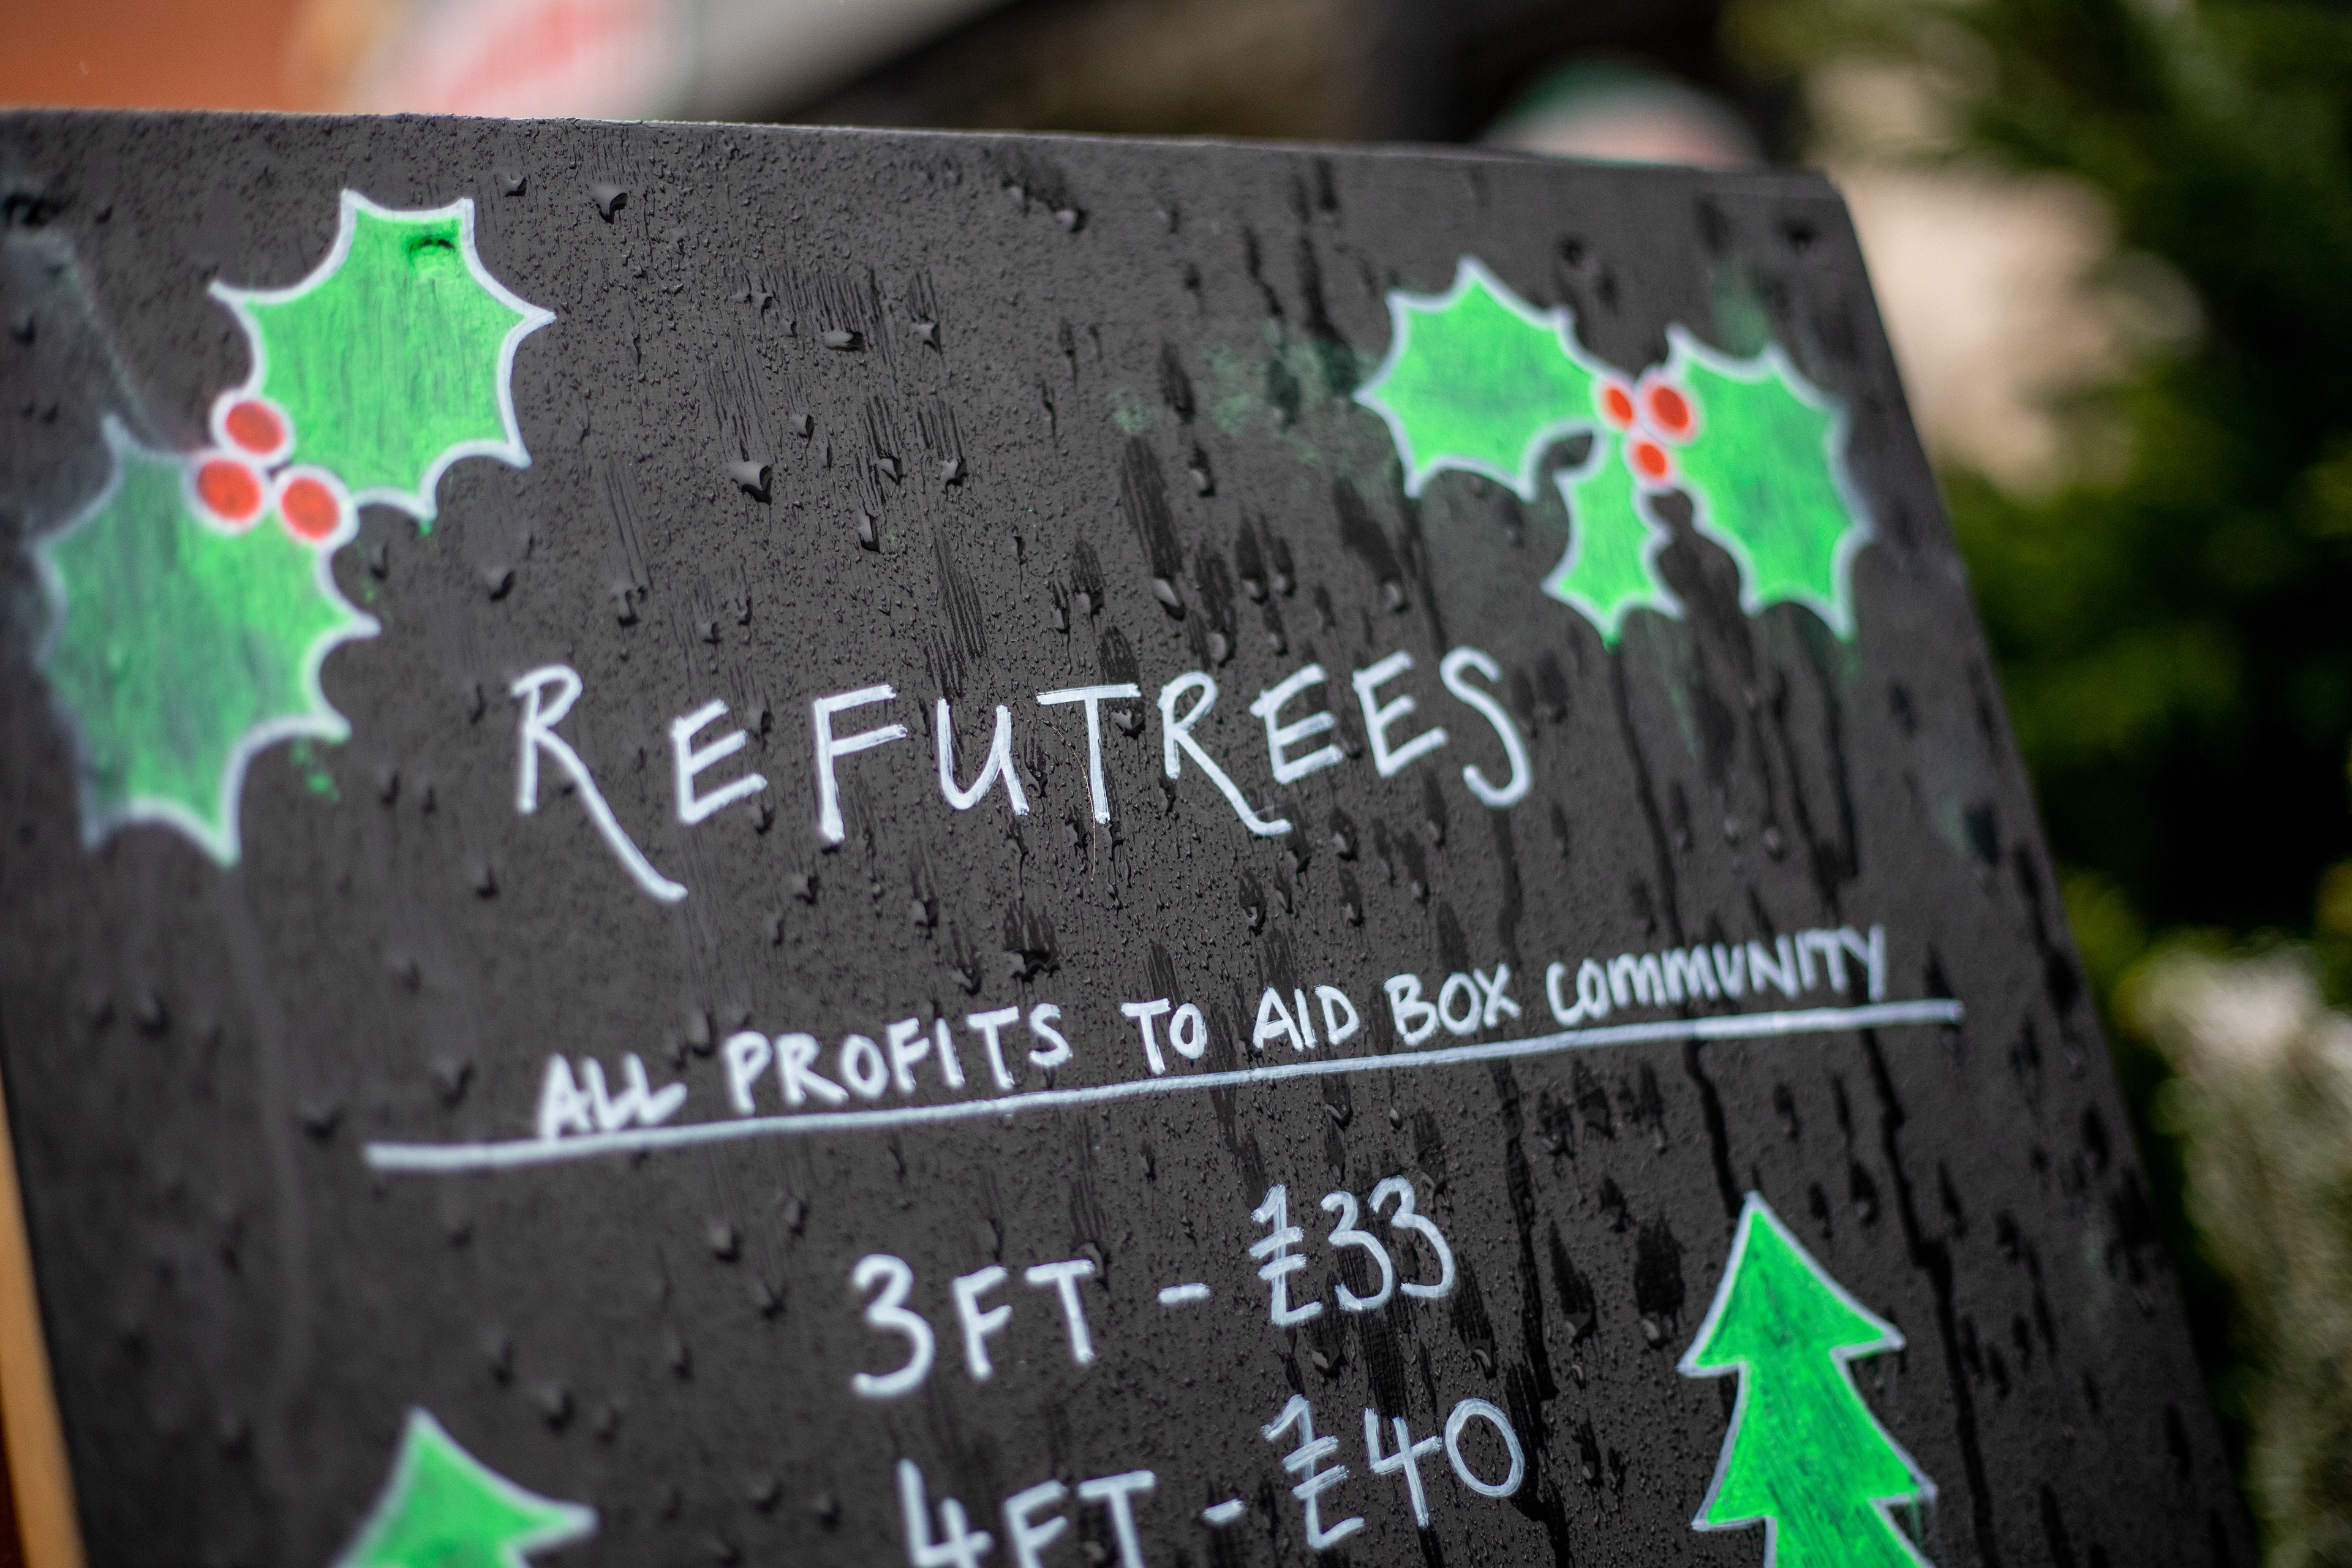 REFUTREES
ALL PROFITS TO AID BOX COMMUNITY
3FT - £33
4FT - £40